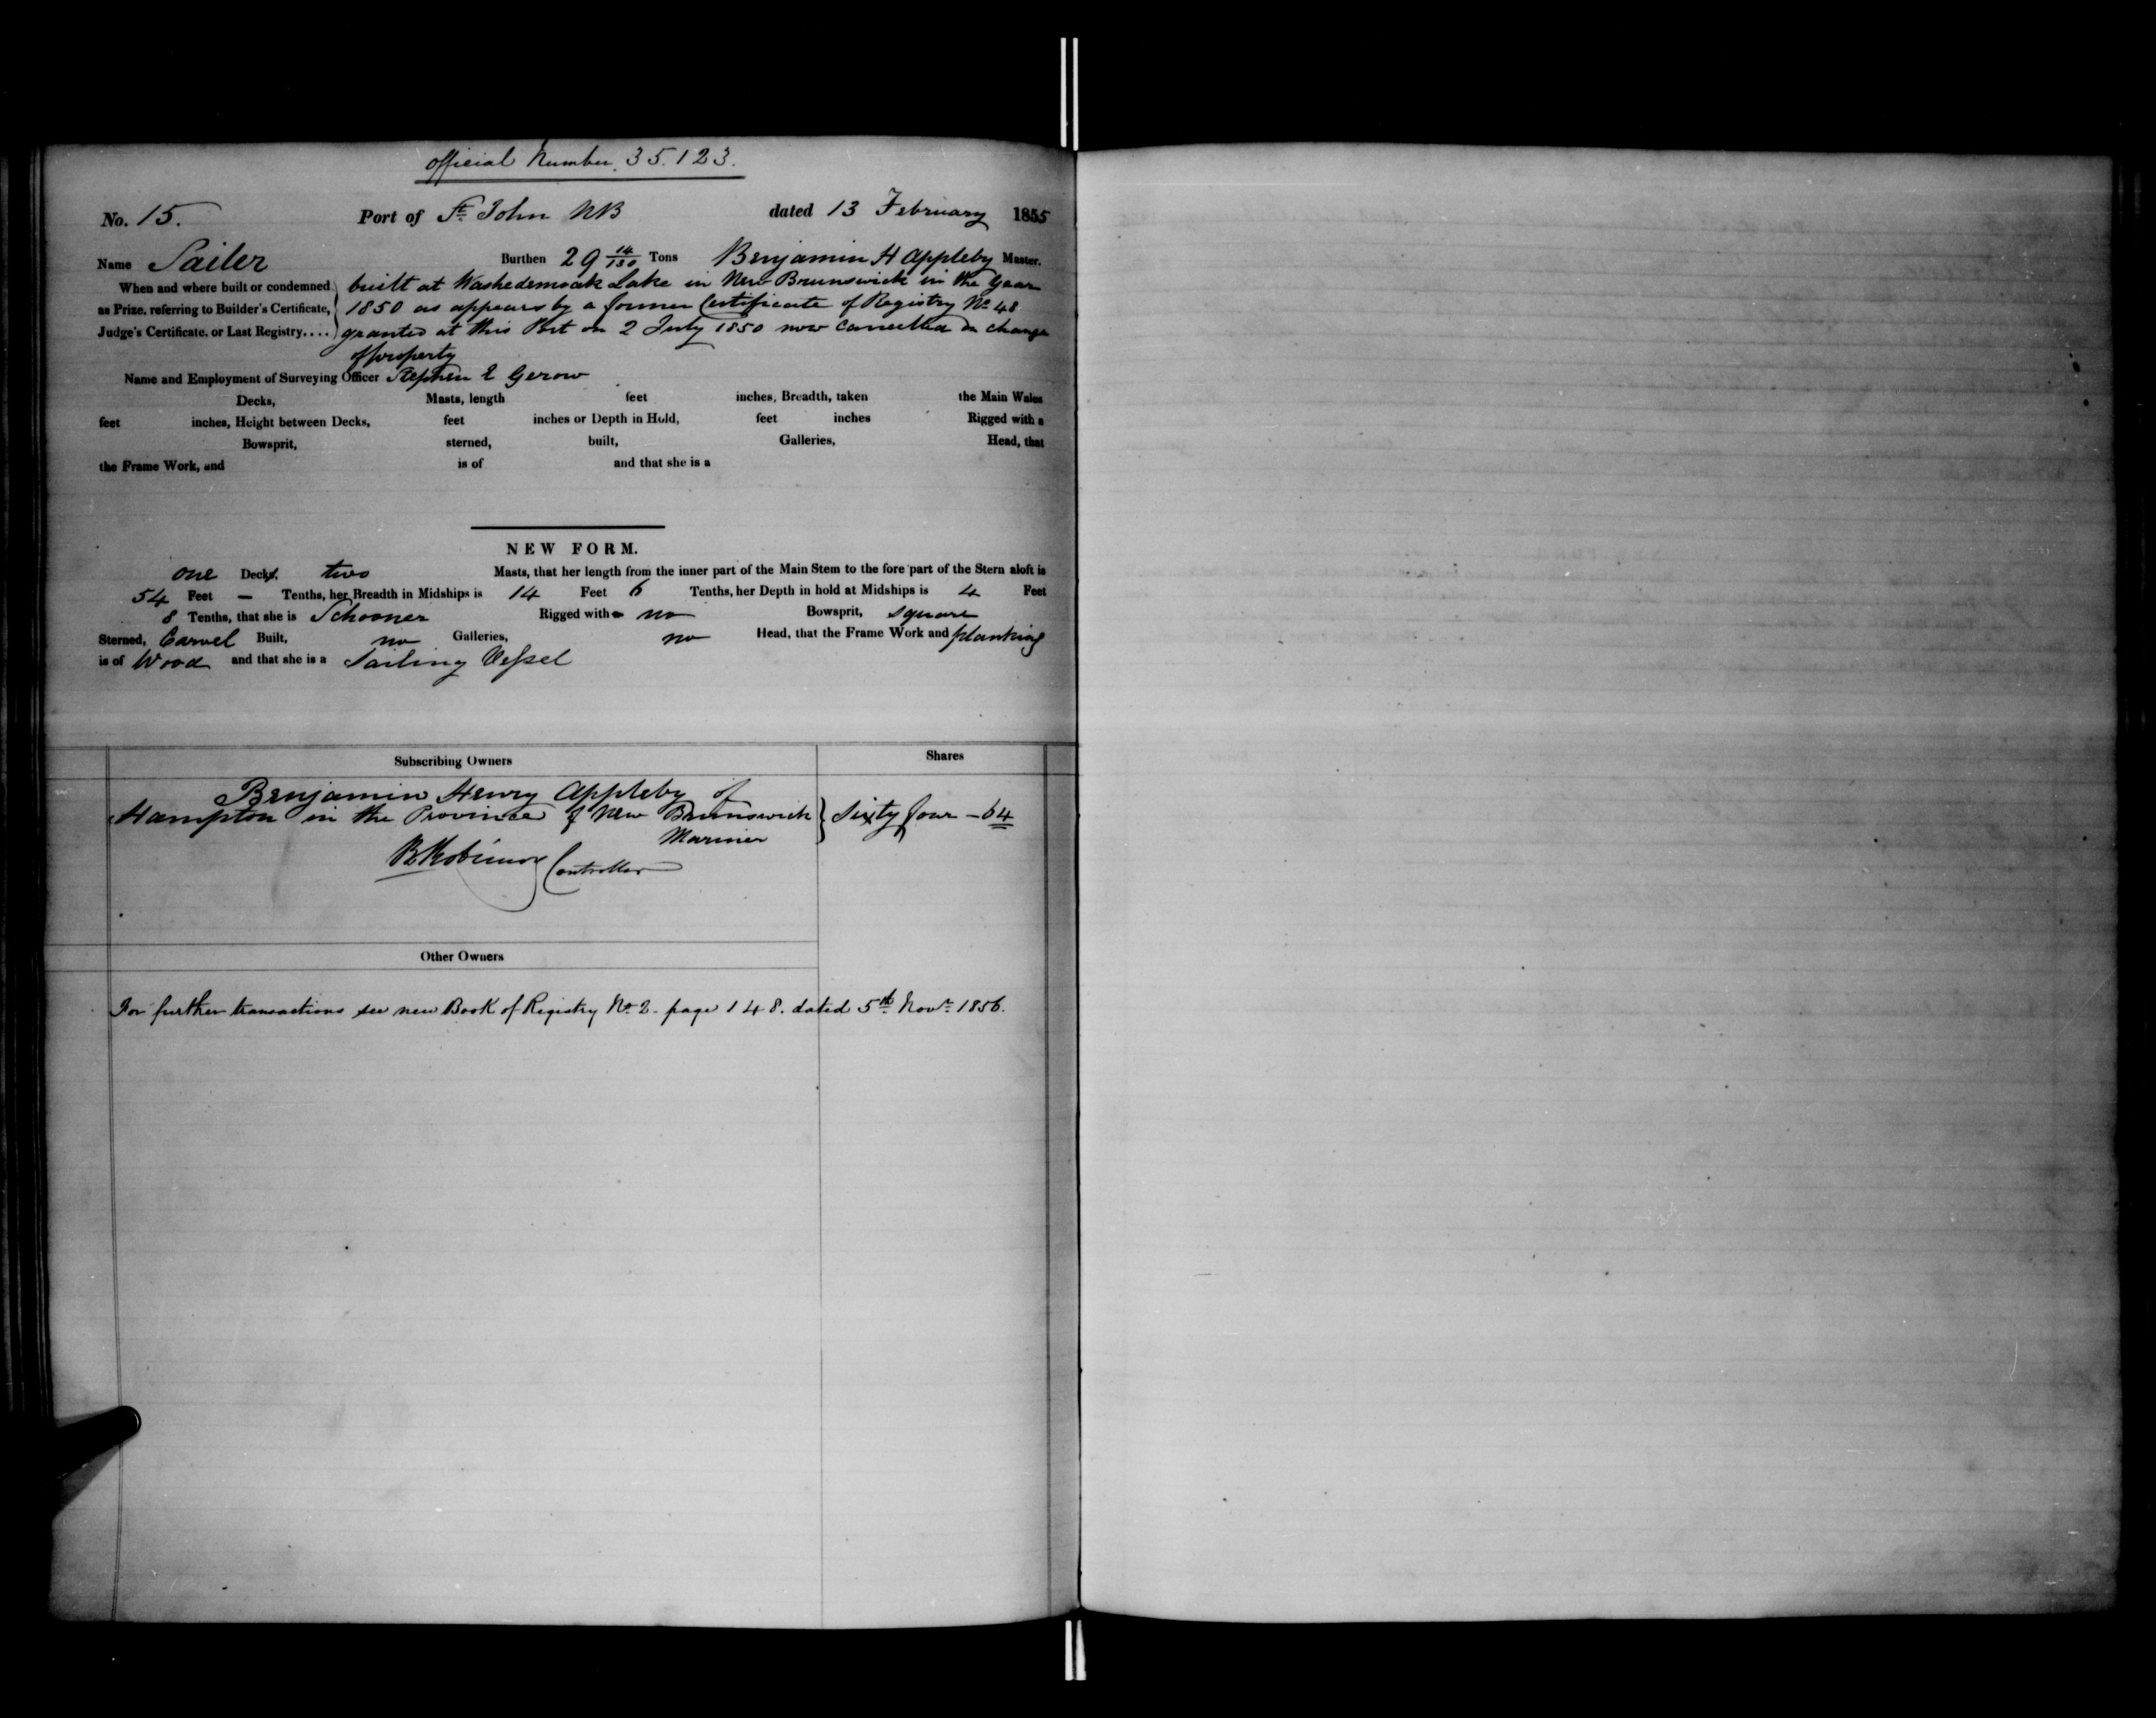 official Number 35.123.
No. 15. Port of St John NB dated 13 February 1855
Name Sailer Burthen 29 14/130 Tons Benjamin H Appleby Master.
When and where built or condemned built at Washedemoak Lake in New Brunswick in the Year
as Prize, referring to Builder's Certificate, 1850 as appears by a former Certificate of Registry No 48
Judge's Certificate. or Last Registry.... granted at this Port on 2 July 1850 now Cancelled on change
of property
Name and Employment of Surveying Officer Stephen E Gerow
Decks, Masts, length feet inches, Breadth, taken the Main Wales
feet inches, Height between Decks, feet inches or Depth in Hold, feet inches Rigged with a
Bowsprit, sterned, built, Galleries, Head, that
the Frame Work, and is of and that she is a
NEW FORM.
one Deck, two Masts, that her length from the inner part of the Main Stem to the fore part of the Stern aloft is
54 Feet — Tenths, her Breadth in Midships is 14 Feet 6 Tenths, her Depth in hold at Midships is 4 Feet
8 Tenths, that she is Schooner Rigged with no Bowsprit, square
Sterned, Carvel Built, no Galleries, no Head, that the Frame Work and planking
is of Wood and that she is a Sailing Vessel
Subscribing Owners Shares
Benjamin Henry Appleby of
Hampton in the Province of New Brunswick } Sixty four - 64
Mariner
Controller
Other Owners
For further transactions see new Book of Registry No 2. page 148. dated 5th Novr 1856.